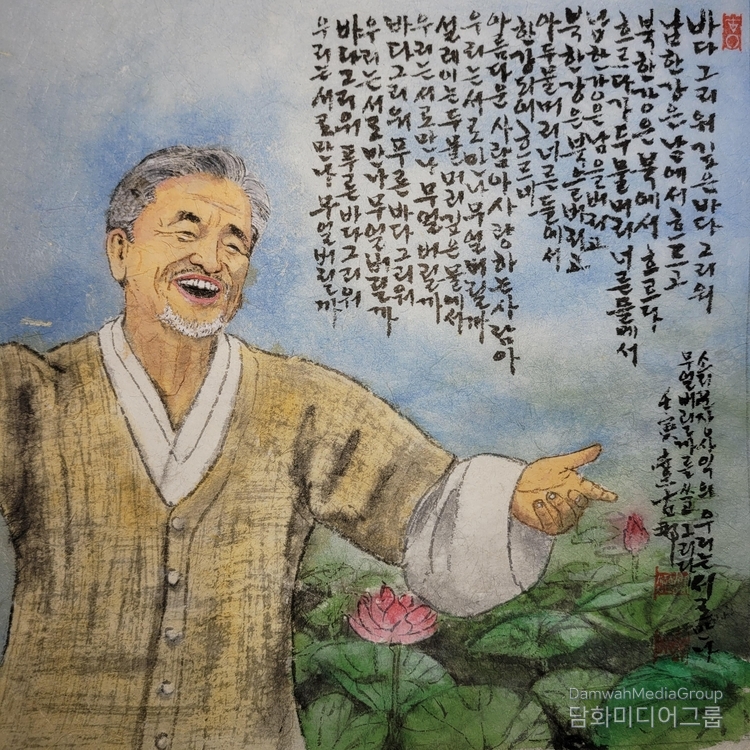 바다 그리워 깊은 바다 그리워
남한강은 남에서 흐르고
북한강은 북에서 흐르다
흐르다가 두물머리 너른 물에서
남한강은 남을 버리고
북한강은 북을 버리고
아 두물머리 너른 들에서
한강되어 흐르네
아름다운 사람아 사랑하는 사람아
우리는 서로 만나 무얼 버릴까
설레이는 두물머리 깊은 물에서
우리는 서로 만나 무얼 버릴까
바다 그리워 푸른 바다 그리워
우리는 서로 만나 무얼 버릴까
바다 그리워 푸른 바다 그리워
우리는 서로 만나 무얼 버릴까
소리꾼 장사익의 우리는 서로 만나
무얼 버릴까를 쓰고 그리다
壬寅
DamwhaMediaGroup
담화미디어그룹